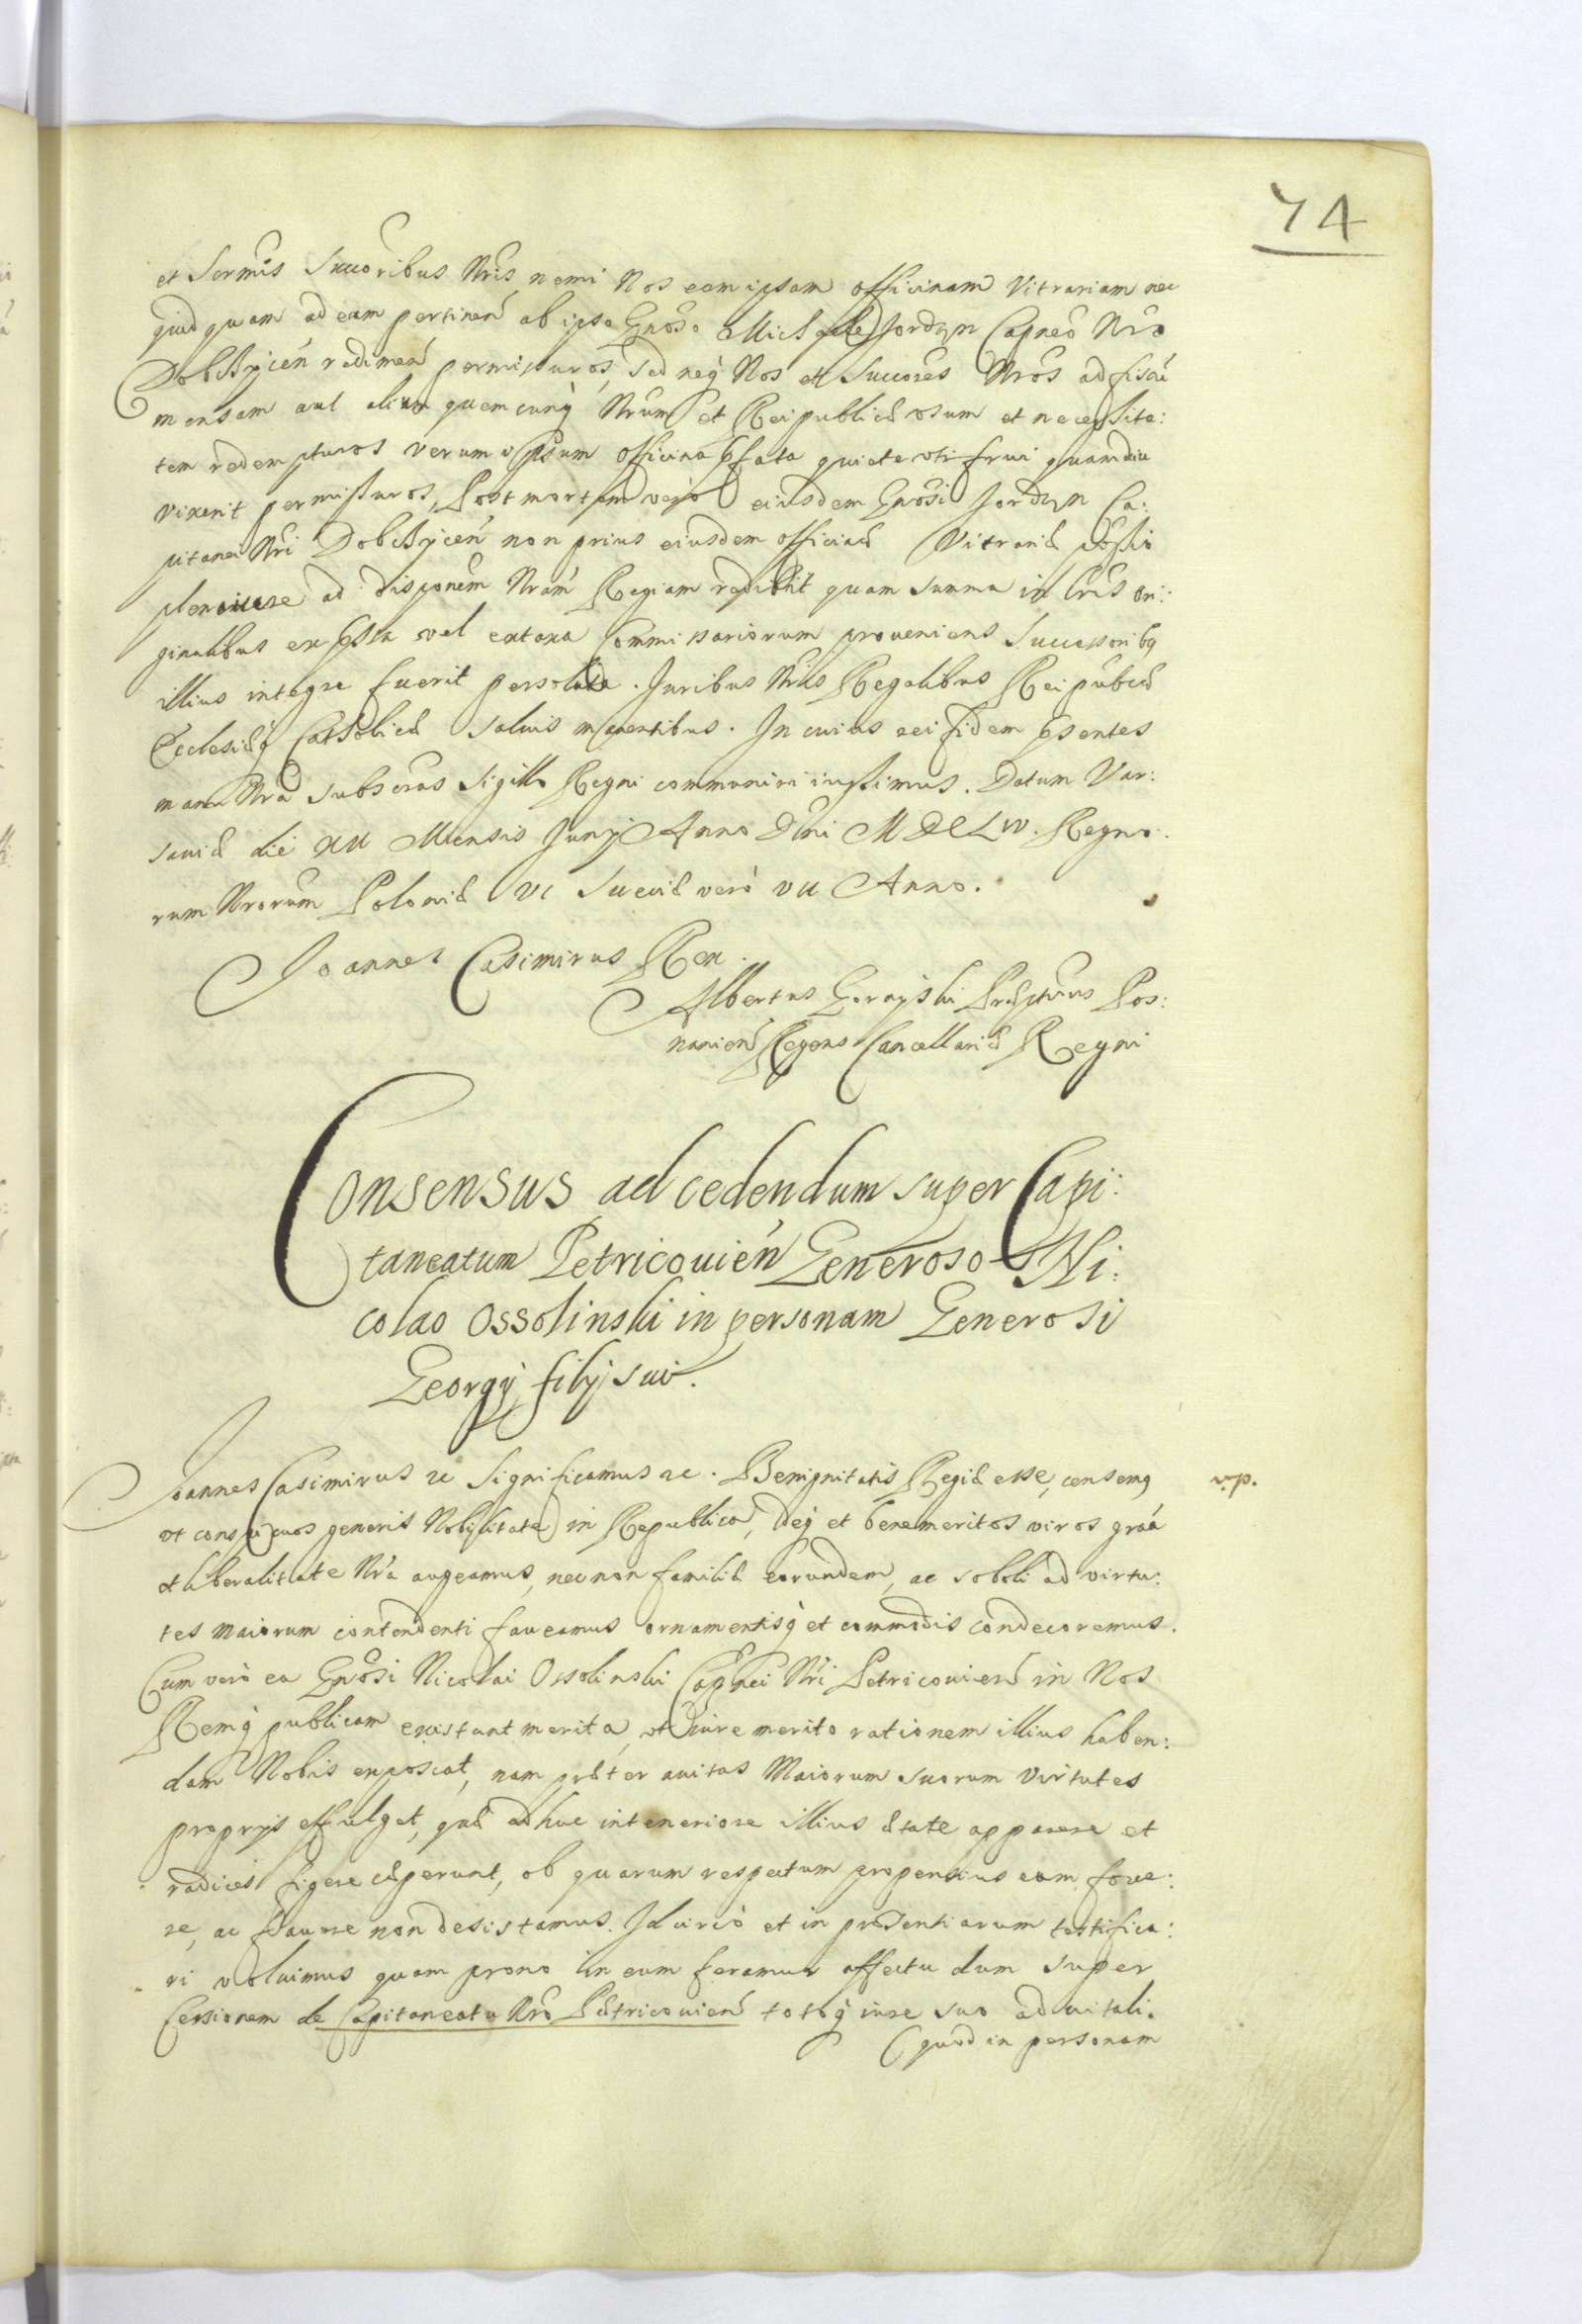 74
et Sermis Suuoribus Nris nemi Nos eam ipsam officinam Vitrariam nec
quidquam ad eam pertinen ab ipso Gnoso Michaele Jordan Capneo Nro
Dobczycen redimen permissuros, sed neq Nos et Succores Nros ad fisci
mensam aut alium quemcunq Nrum et Reipublicæ usum et necessita:
tem redempturos verum ipsum officina pfata quiete uti frui quamdiu
vixerit permissuros, Post mortem vero eiusdem Gnosi Jordan Ca:
pitanei Nri Dobczycen non prius eiusdem officinæ Vitrariæ possio
plenarie ad disponem Nram Regiam redibit quam summa in lris ori:
ginalibus expssa vel ex taxa Commissariorum proueniens Successoribq
illius integre fuerit persoluta. Juribus Nris Regalibus Reipubcæ
Ecclesiæq Catholicæ saluis manentibus. In cuius rei fidem psentes
manu Nra subscras Sigillo Regni communiri iussimus. Datum Var:
sauiæ die XII Mensis Junij Anno Dni MDCLIV. Regno:
rum Nrorum Poloniæ VI Sueciæ verò VII Anno.
Joannes Casimirus Rex.
Albertus Gorayski Præptus Pos:
nanien Regens Cancellariæ Regni
Consensus ad cedendum super Capi:
taneatum Petricouień Generoso Ni:
colao Ossolinski in personam Generosi
Georgij filij sui.
Joannes Casimirus &c Significamus &c. Benignitatis Regiæ esse, censemq
ut conspicuos generis Nobilitate in Republica, deq et benemeritos viros graa
et liberalitate Nra augeamus, necnon familiæ eorundem, ac soboli ad virtu:
tes maiorum contendenti faueamus ornamentisq et commodis condecoremus.
Cum verò ea Gnosi Nicolai Ossolinski Capnei Nri Petricouien in Nos
Remq publicam existant merita, ut iure merito rationem illius haben:
dam Nobis exposcat, nam præter auitas Maiorum suorum Virtutes
proprijs effulget, quæ adhuc in teneriore illius ætate apparere et
radices figere cæperunt, ob quarum respectum propensius eum foue:
re, ac fauere non desistamus. Idcirco et in præsentiarum testifica:
ri voluimus quam prono in eum feramur affectu dum super
Cessionem de Capitaneatu Nro Petricouien totoq iure suo aduitali.
quod in personam